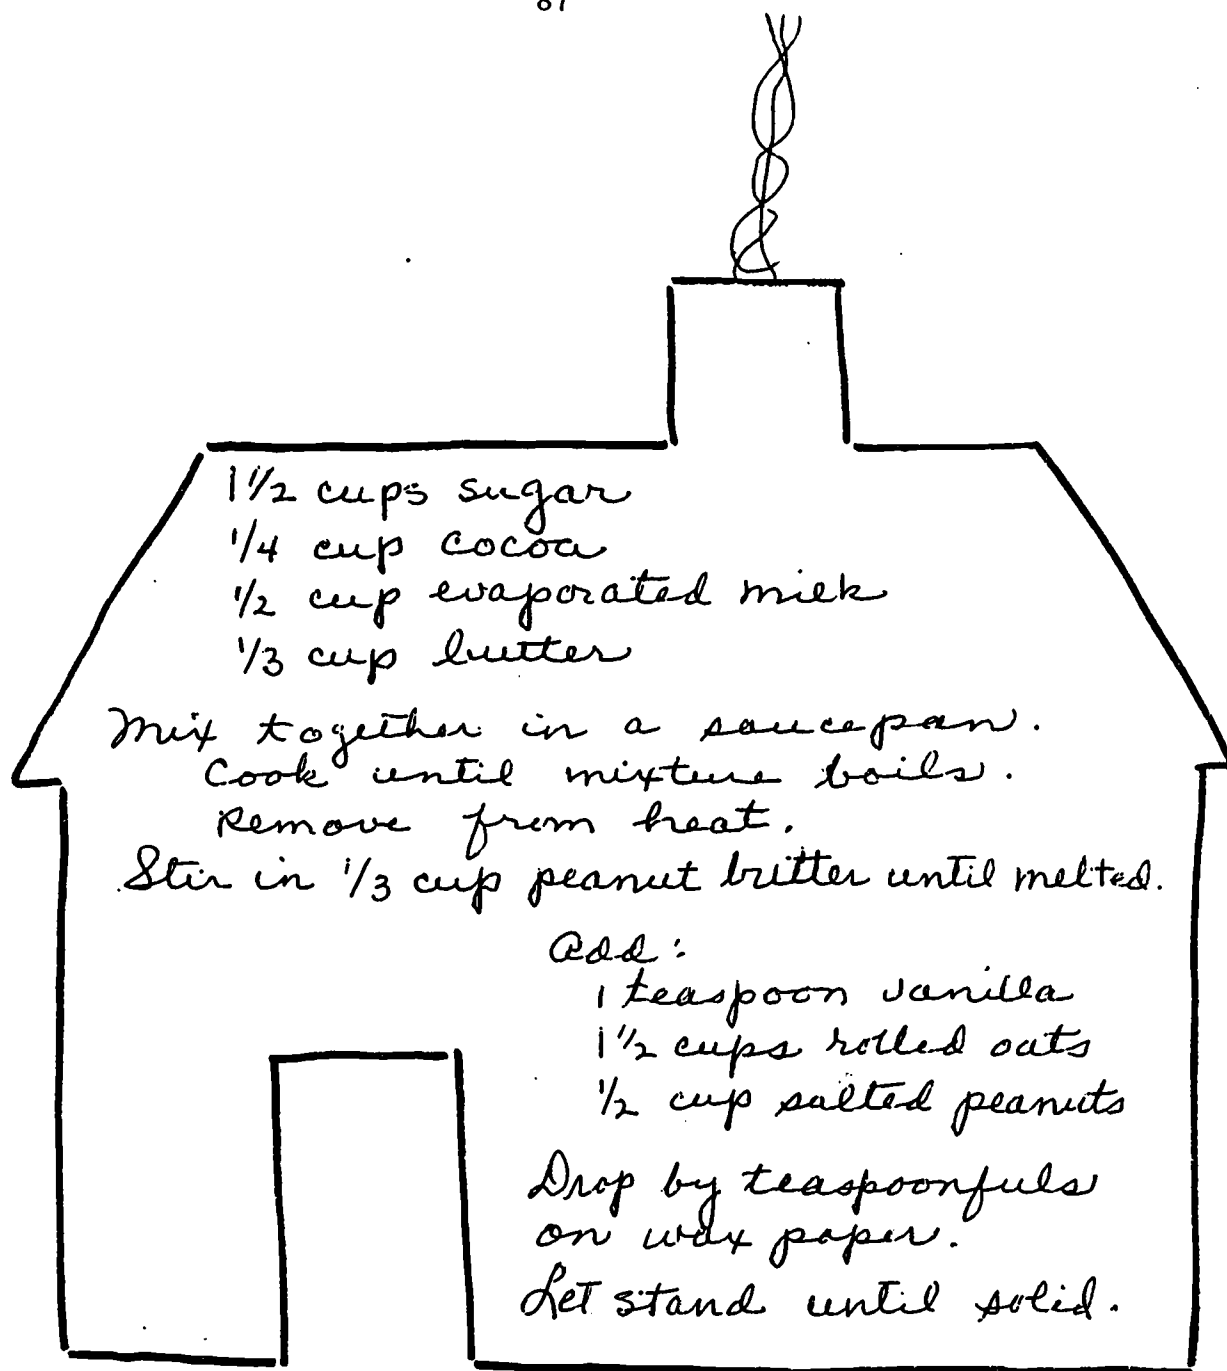 87
1 1/2 cups sugar
1/4 cup cocoa
1/2 cup evaporated milk
1/3 cup butter
Mix together in a saucepan.
Cook until mixture boils.
Remove from heat.
Stir in 1/3 cup peanut butter until melted.
Add:
1 teaspoon vanilla
1 1/2 cups rolled oats
1/2 cup salted peanuts
Drop by teaspoonfuls
on wax paper.
Let stand until solid.